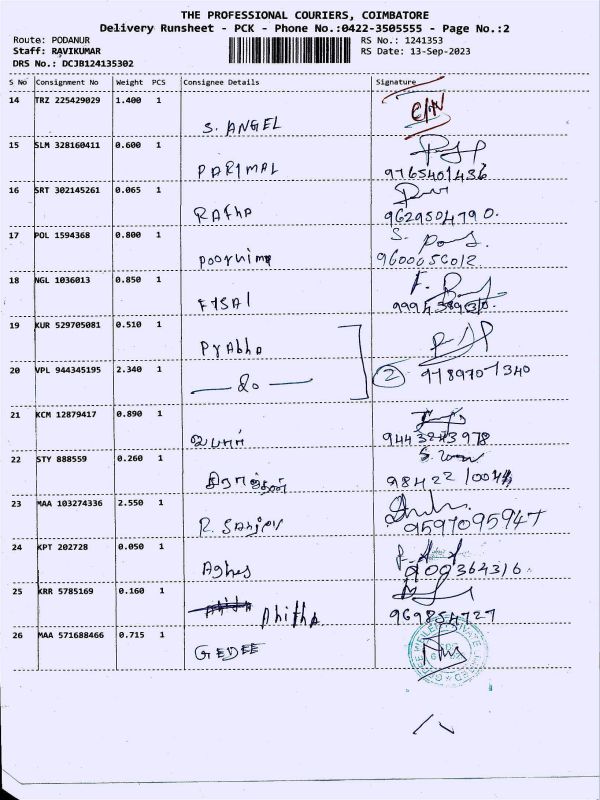 THE PROFESSIONAL COURIERS, COIMBATORE
Delivery Runsheet - PCK - Phone No.:0422-3505555 - Page No.:2
Route: PODANUR
RS No.: 1241353
Staff: RAVIKUMAR
RS Date: 13-Sep-2023
DRS No.: DCJB124135302
S No Consignment No Weight PCS Consignee Details Signature
14 TRZ 225429029 1.400 1
S. ANGEL
15 SLM 328160411 0.600 1
PARIMAL 9765401436
16 SRT 302145261 0.065 1
Ratha 9629504790.
17 POL 1594368 0.800 1
poornima 9600056012
18 NGL 1036013 0.850 1
19 KUR 529705081 0.510 1
Prabha
20 VPL 944345195 2.340 1
— do — 2 9789701340
21 KCM 12879417 0.890 1
9443243978
22 STY 888559 0.260 1
98422
23 MAA 103274336 2.550 1
R. Sanjov 9597095947
24 KPT 202728 0.050 1
Aghes 900364316.
25 KRR 5785169 0.160 1
Ahitha 969854727
26 MAA 571688466 0.715 1
GEDEE